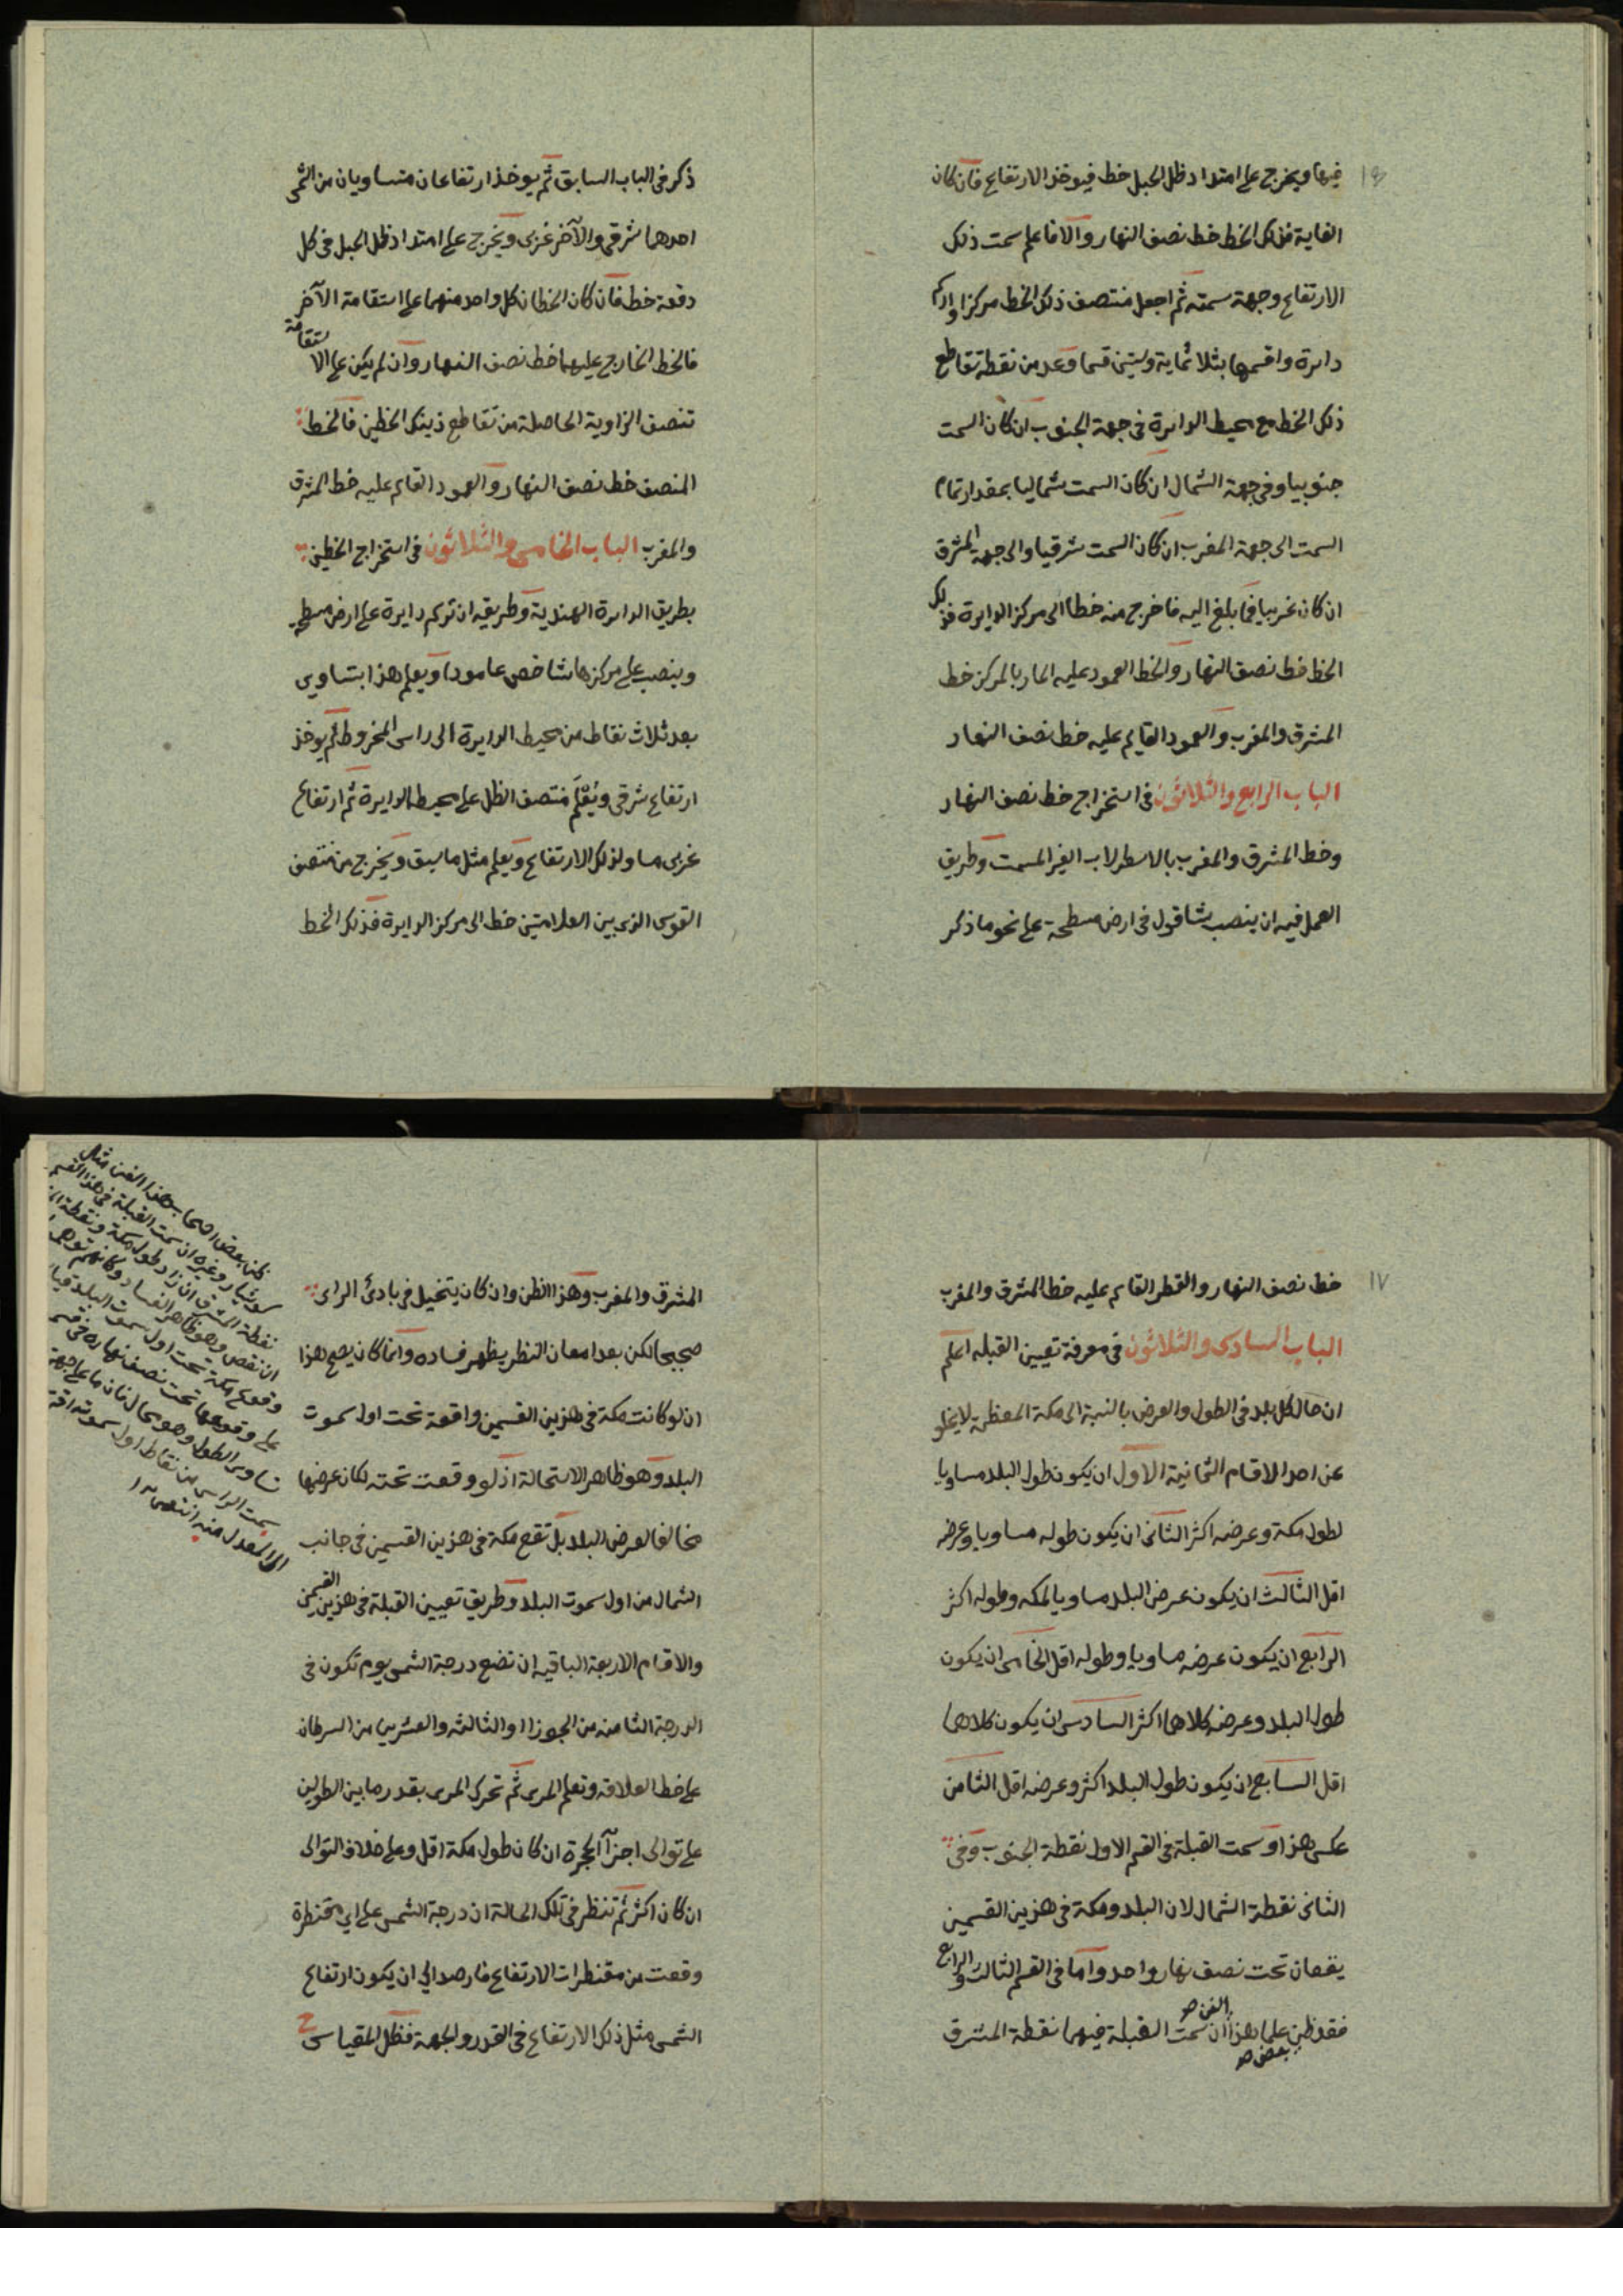 ١٦
فيها ويخرج على امتداد ظل الحبل خط فيوخذ الارتفاع فان كان
الغاية فذلك الخط خط نصف النهار والا فاعلم سمت ذلك
الارتفاع وجهة سمته ثم اجعل منتصف ذلك الخط مركزا وادرم
دايرة واقسمها بثلاثماية وستين قسما وعد من نقطة تقاطع
ذلك الخط مع محيط الدايرة في جهة الجنوب ان كان السمت
جنوبيا وفي جهة الشمال ان كان السمت شماليا بمقدار تمام
السمت الى جهة المغرب ان كان السمت شرقيا والى جهة المشرق
ان كان غربيا فما بلغ اليه فاخرج منه خطا الى مركز الدايرة فذلك
الخط خط نصف النهار والخط العمود عليه المار بالمركز خط
المشرق والمغرب والعمود القايم عليه خط نصف النهار
الباب الرابع والثلاثون في استخراج خط نصف النهار
وخط المشرق والمغرب بالاسطرلاب الغير المسمت وطريق
العمل فيه ان ينصب شاقول في ارض مسطحة على نحو ما ذكر
ذكر في الباب السابق ثم يوخذ ارتفاعان متساويان من الشمس
احدهما شرقي والآخر غربى ويخرج على امتداد ظل الحبل في كل
دفعة خط فان كان الخطان كل واحد منهما على استقامة الآخر
فالخط الخارج عليهما خط نصف النهار وان لم يكن على الاستقامة
تنصف الزاوية الحاصلة من تقاطع ذينك الخطين فالخط
المنصف خط نصف النهار والعمود القايم عليه خط المشرق
والمغرب الباب الخامس والثلاثون في استخراج الخطين
بطريق الدايرة الهندية وطريقه ان تركم دايرة على ارض مسطحة
وينصب على مركزها شاخص عامودا ويعلم هذا بتساوي
بعد ثلاث نقاط من محيط الدايرة الى راس المخروط ثم يوخذ
ارتفاع شرقي ويُعْلَم منتصف الظل على محيط الدايرة ثم ارتفاع
غربى مساو لذلك الارتفاع ويعلم مثل ما سبق ويخرج من منتصف
القوس الذى بين العلامتين خط الى مركز الدايرة فذلك الخط
١٧
خط نصف النهار والقطر القايم عليه خط المشرق والمغرب
الباب السادس والثلاثون في معرفة تعيين القبله اعلم
ان حال كل بلد في الطول والعرض بالنسبة الى مكة المعظمة لا يخلو
عن احد الاقسام الثمانية الاول ان يكون طول البلد مساويا
لطول مكة وعرضه اكثر الثانى ان يكون طوله مساويا وعرضه
اقل الثالث ان يكون عرض البلد مساويا لمكه وطوله اكثر
الرابع ان يكون عرضه مساويا وطوله اقل الخامس ان يكون
طول البلد وعرضه كلاهما اكثر السادس ان يكون كلاهما
اقل السابع ان يكون طول البلد اكثر وعرضه اقل الثامن
عكس هذا وسمت القبلة في القسم الاول نقطة الجنوب وفى
الثانى نقطة الشمال لان البلد ومكة في هذين القسمين
يقعان تحت نصف نهار واحد واما في القسم الثالث والرابع
فقد ظن علما هذا الفن صح ان سمت القبلة فيهما نقطة المشرق
بعض صح
المشرق والمغرب وهذا الظن وان كان يتخيل في بادئ الراى
صحيحا لكن بعد امعان النظر يظهر فساده وانما كان يصح هذا
ان لو كانت مكة في هذين القسمين واقعة تحت اول سموت
البلد وهو ظاهر الاستحالة اذ لو وقعت تحته لكان عرضها
مخالفا لعرض البلد بل تقع مكة في هذين القسمين في جانب
الشمال من اول سموت البلد وطريق تعيين القبلة في هذين القسمين
والاقسام الاربعة الباقيه ان تضع درجة الشمس يوم تكون في
الدرجة الثامنه من الجوزا او الثالثه والعشرين من السرطان
على خط العلاقه وتعلم المرى ثم تحرك المرى بقدر ما بين الطولين
على توالى اجزآ الحجرة ان كان طول مكة اقل وعلى خلاف التوالى
ان كان اكثر ثم تنظر في تلك الحالة ان درجة الشمس على اى مقنطرة
وقعت من مقنطرات الارتفاع فارصد الي ان يكون ارتفاع
الشمس مثل ذلك الارتفاع في القدر والجهة فظل المقياس ح
ظن بعض اصحاب هذا الفن مثل
كوشيار وغيره ان سمت القبلة في هذا القسم
نقطة المشرق ان زاد طول مكة ونقطة
ان نقص وهو ظاهر الفساد وكانهم توهموا
وقوع مكة تحت اول سموت البلد قياسا
على وقوعها تحت نصف نهاره في قسم
تساوى الطول وهو محال فان ما على جهة
سمت الراس من نقاط اول سموته اقرب
الى المعدل منه انتهى ١٢